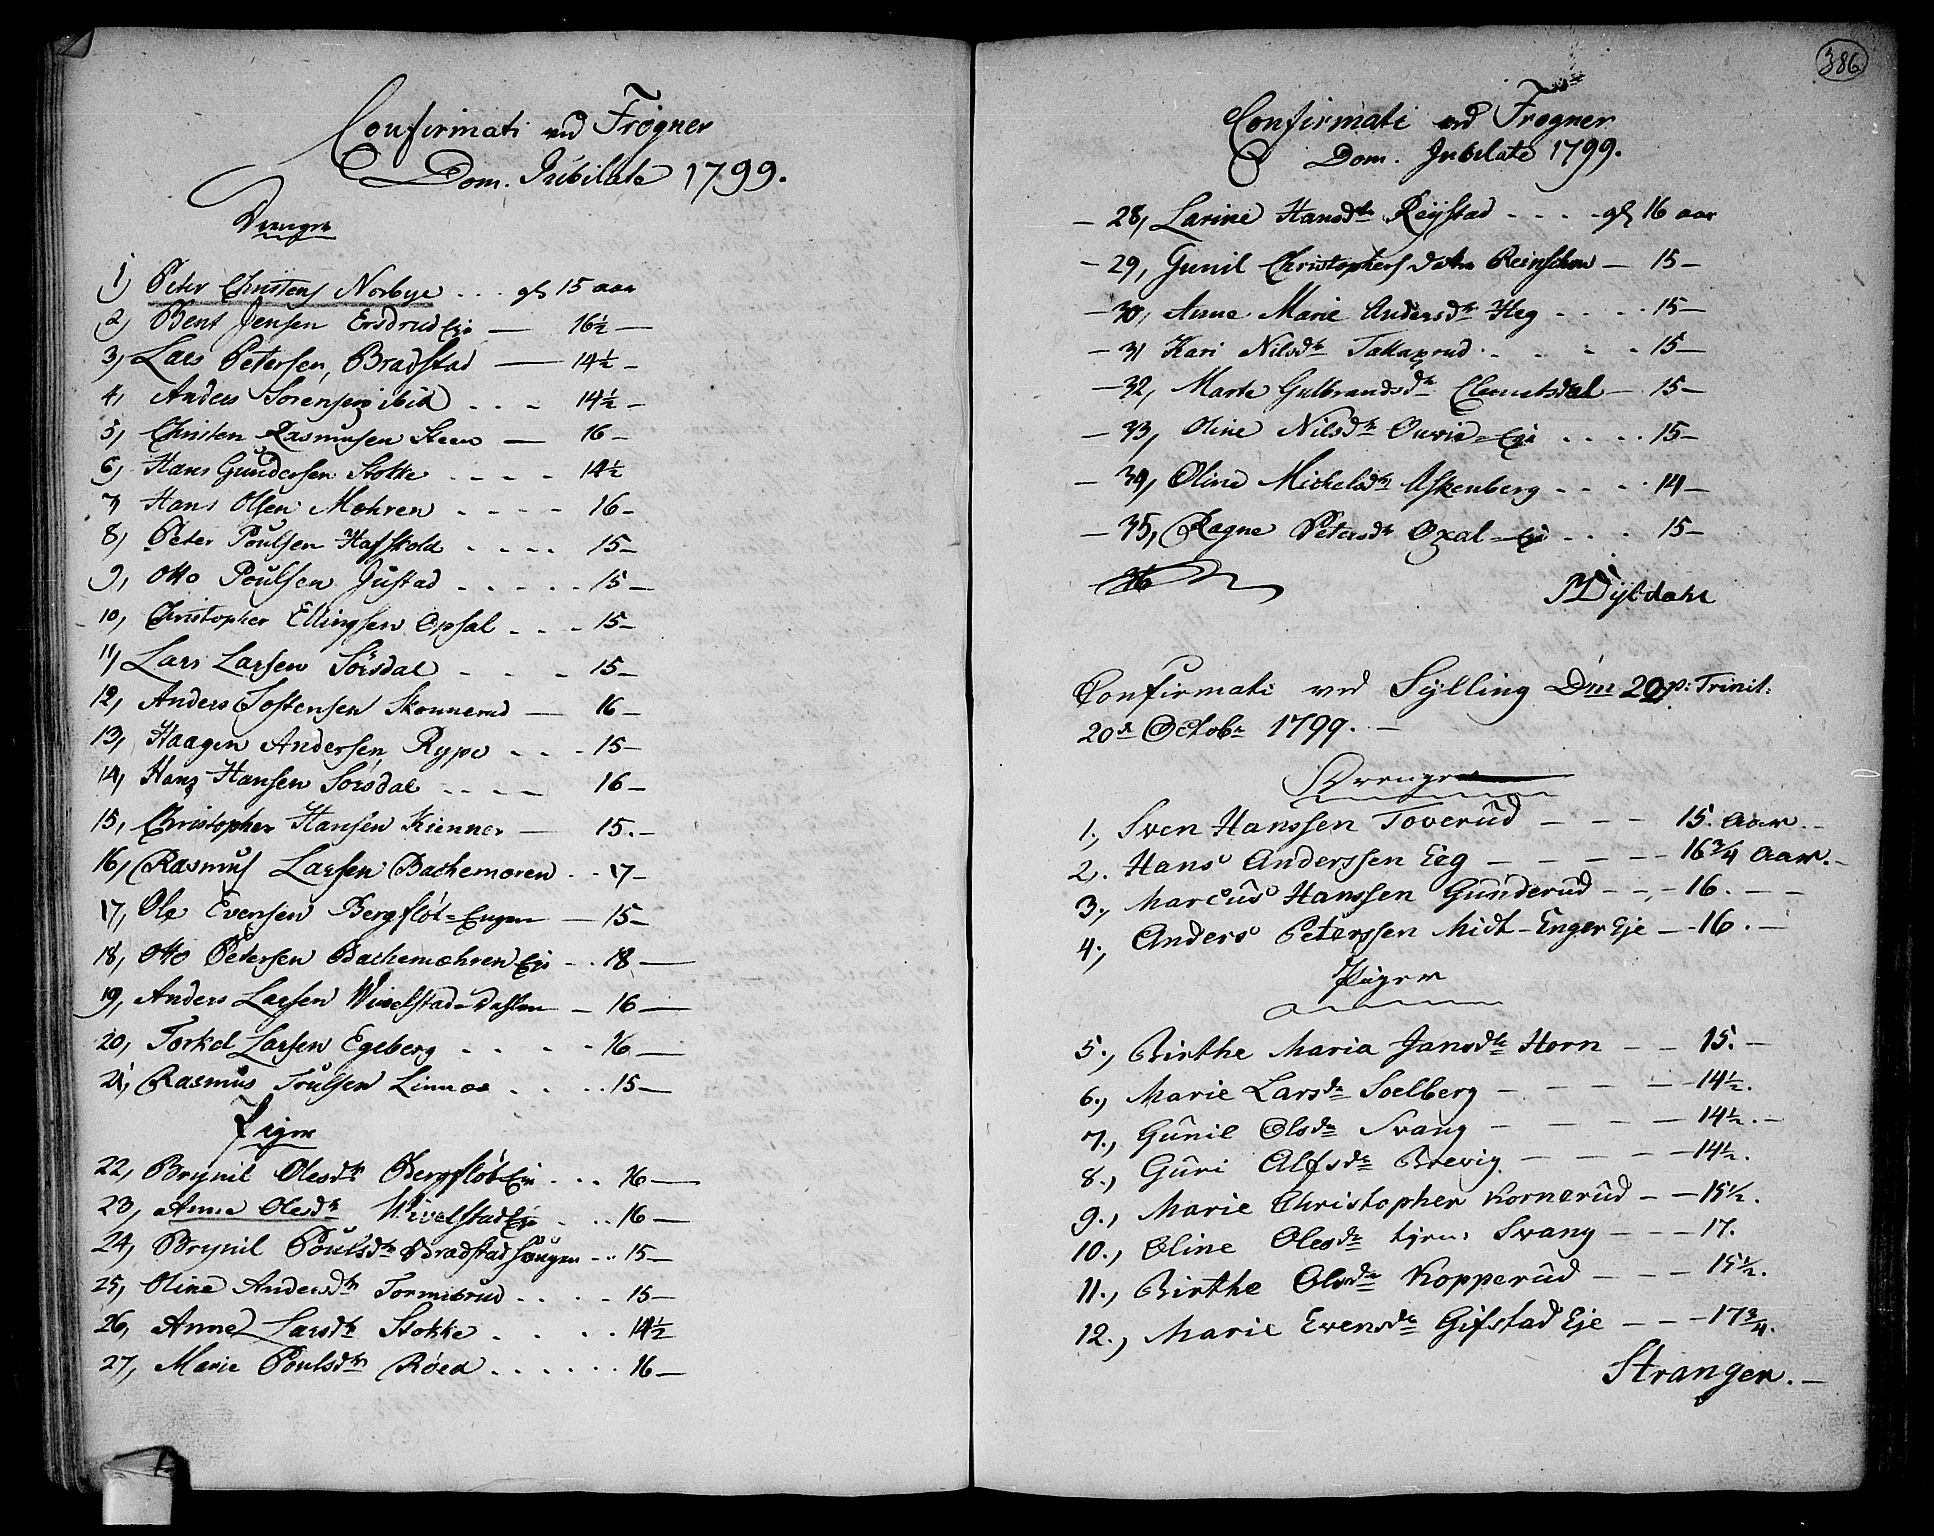 Confirmati ved Frogner
Dom. Jubilate 1799.
Drenge
1) Peter Christens Norbye . . . gl 15 aar
2) Bent Jensen Ersdrud Eje — 16½ —
3) Lars Petersen, Bradstad — 14½ —
4, Anders Sorensen ibid . . . 14½ —
5, Christen Rasmusen Steen — 16 —
6, Hans Gundersen Stokke . . . . 14½
7 Hans Olsen Mohren . . . . 16 —
8, Peter Poulsen Hafskold . . . . 15 —
9, Otto Poulsen Justad . . . . . 15 —
10, Christopher Ellingsen Opsal . . . 15 —
11, Lars Larsen Sörsdal . . . . 15 —
12, Anders Jostensen Skonnerud — 16 —
13, Haagen Andersen Rype . . . 15 —
14, Hans Hansen Sörsdal . . . . 16 —
15, Christopher Hansen Kienner — 15. —
16, Rasmus Larsen Bachemoren . . 17 —
17, Ole Evensen Bergflöt=Engen — 15 —
18, Otto Petersen Bachemoehren Eje . . 18 —
19, Anders Larsen Wivelstad=Dahlen — 16 —
20, Torkel Larsen Egeberg . . . . 16 —
21, Rasmus Trulsen Linnes . . . . 15 —
Piger
22, Brynil Olesdtr Bergflöt Eie . . . 16 —
23, Anne Olesdtr Wivelstad Eje . . . 16 —
24, Brynil Poulsdtr Bradstad Haugen . . 15 —
25, Oline Andersdtr Tormitsrud . . . . 15 —
26, Anne Larsdtr Stokke . . . . . 14½
27, Marie Poulsdtr Röed . . . . . . 16 —
386
Confirmati ved Frogner
Dom. Jubilate 1799.
— 28, Larine Hansdtr Reystad . . . . gl 16 aar
— 29, Gunil Christophersdatter — 15 —
— 30, Anne Marie Andersdtr Heg . . . . 15 —
— 31 Kari Nilsdtr . . . . . 15 —
— 32, Marte Gulbrandsdtr Clemetsdal — 15 —
— 33, Oline Nilsdtr Ouvie=Eje . . . . 15 —
— 34, Oline Michelsdtr Askenberg . . . . 14 —
— 35, Ragne Petersdtr Oxal=Eje . . . 15 —
36
Dyldahl
Confirmati ved Sylling Dni 20 p: Trinit:
20de Octobr 1799. —
Drenge
1., Sven Hanssen Toverud — — — 15. Aar. —
2. Hans Anderssen Eeg — — — — 16¾ Aar. —
3., Marcus Hanssen Gunderud — —, — 16. — —
4., Anders Peterssen Midt-Enger Eje — 16. —
Piger
5., Birthe Maria Jansdtr Horn — — 15. —
6., Marie Larsdr Soelberg — — — — 14½.
7., Gunil Olsdr Svang — — — — 14½. —
8., Guri Alfsdr Brevig — — — — 14½.
9., Marie Christopher Kornerud — — 15½.
10., Oline Olesdr tjen: Svang — — — 17.
11., Birthe Olsdr Kopperud — — — 15½.
12., Marie Evensdr Gifstad Eje — — — 17¾.
Stranger. —